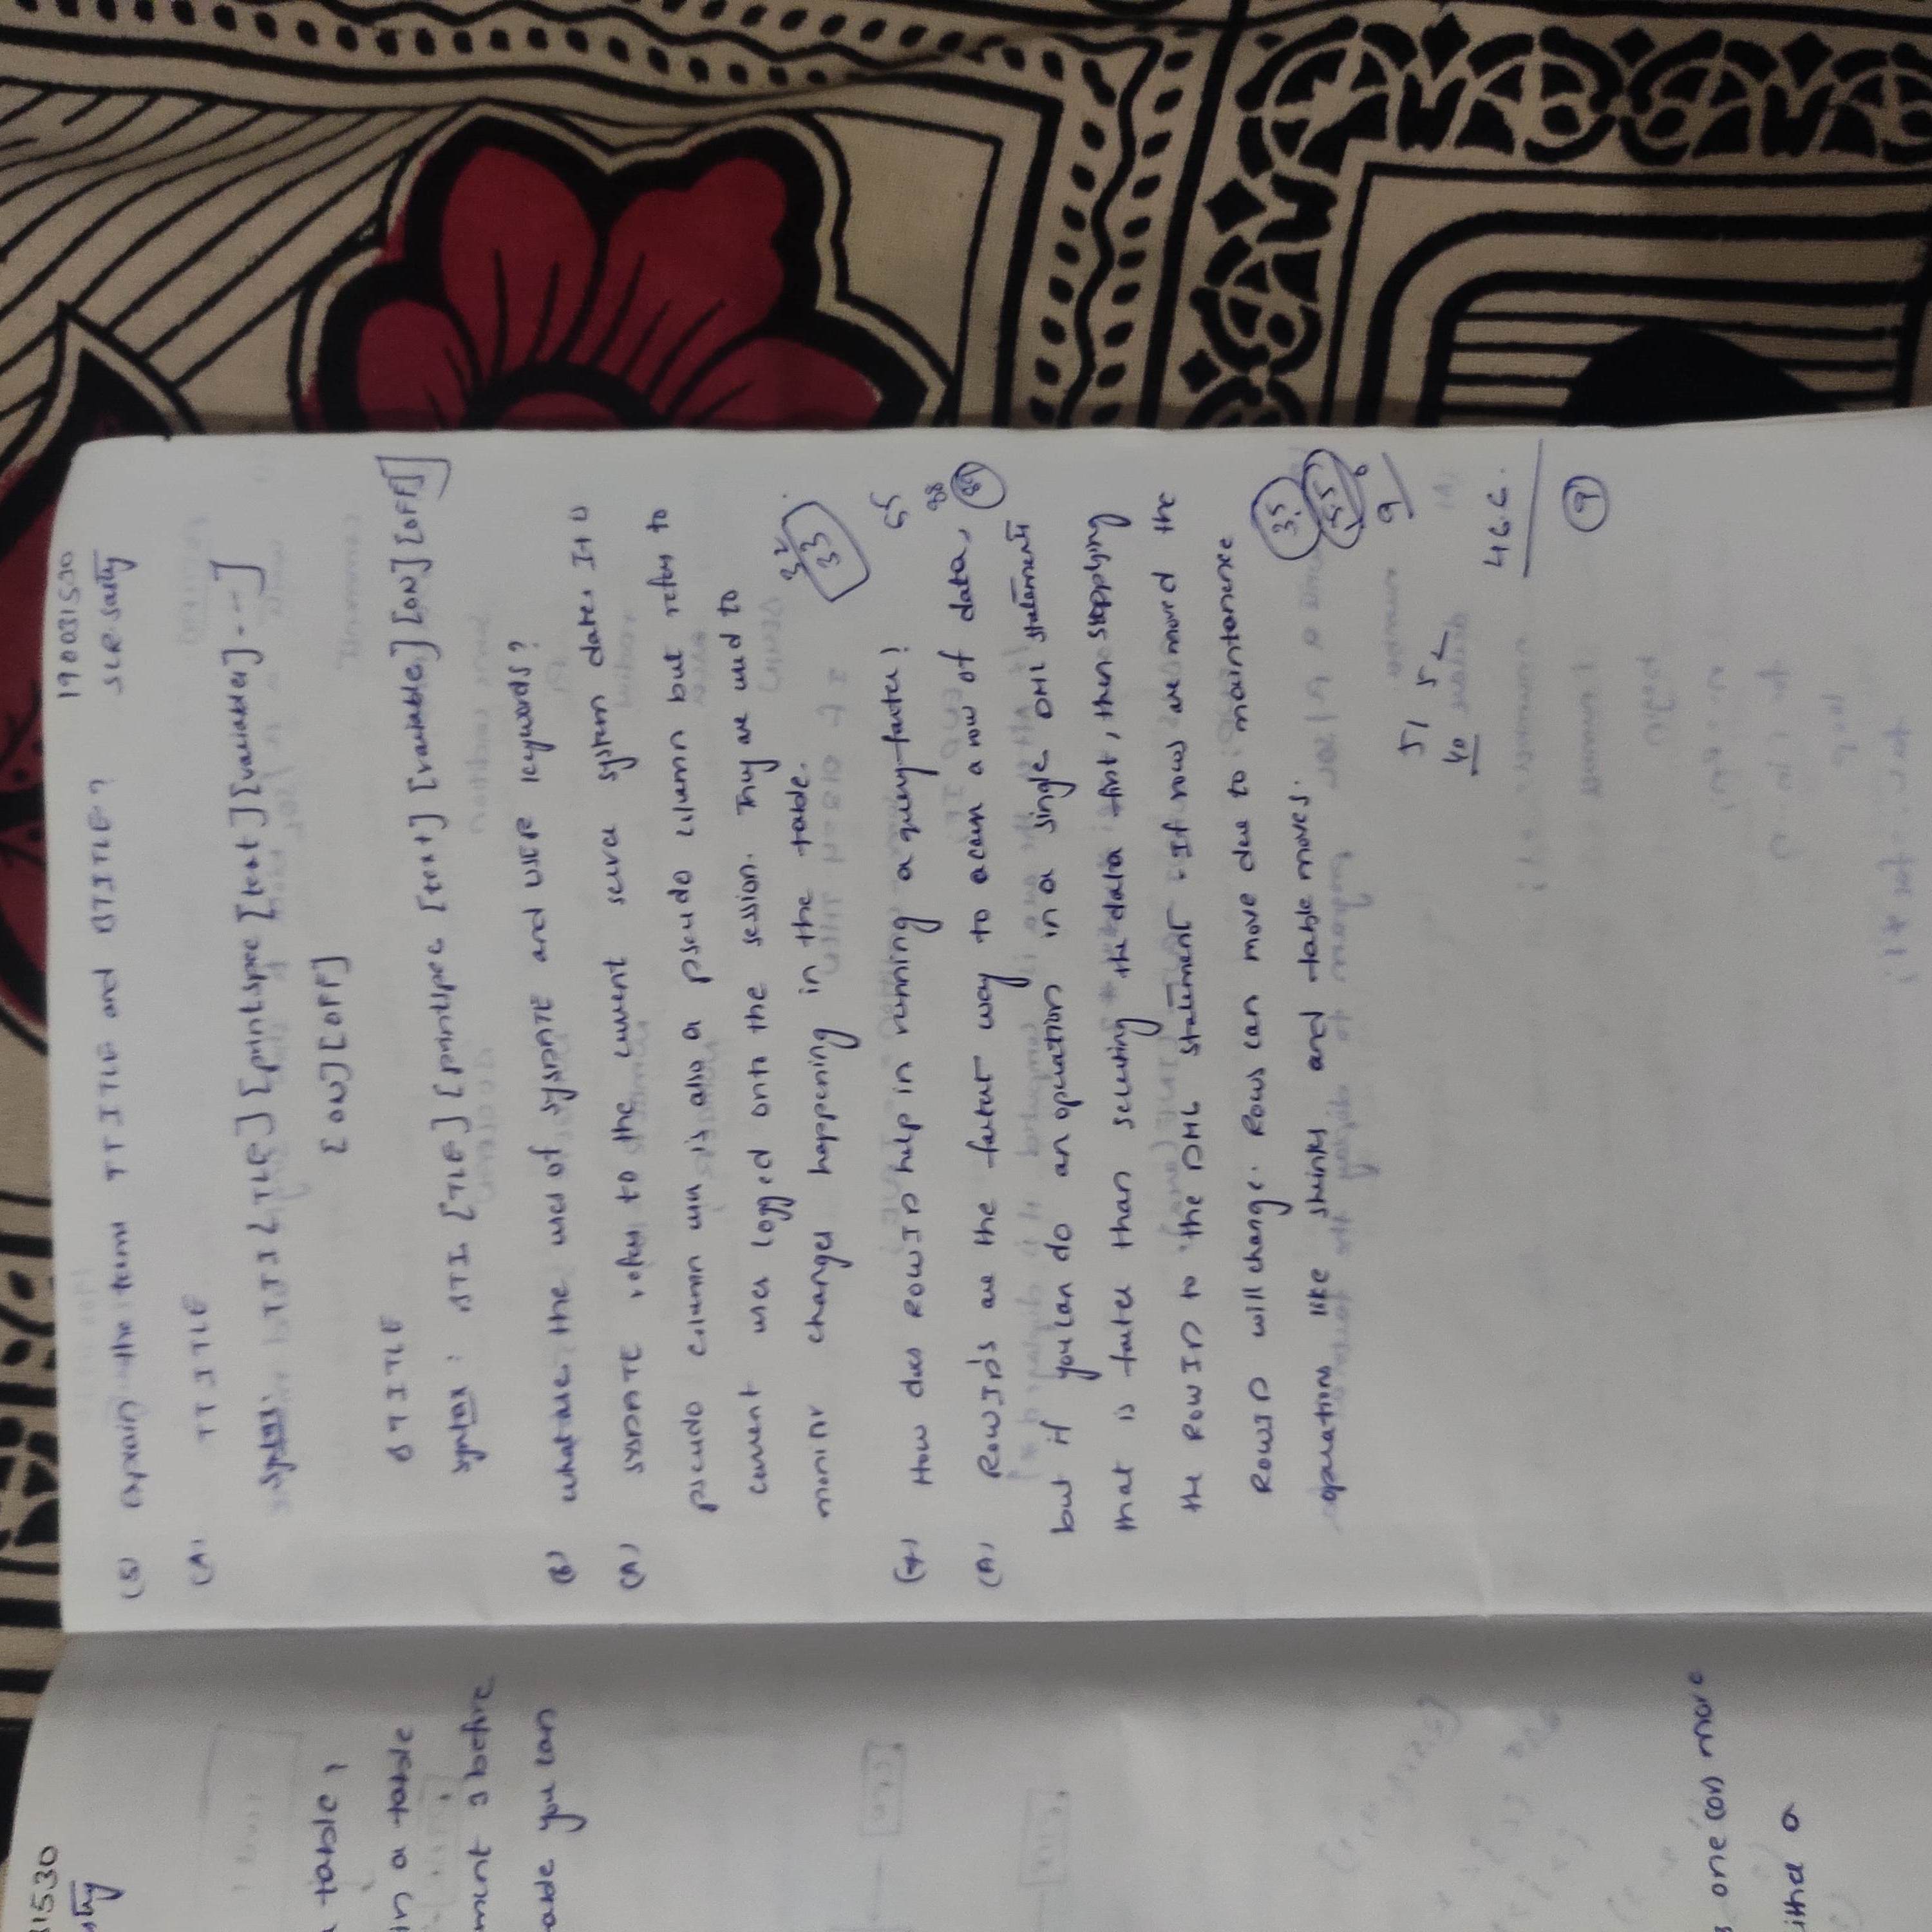 31530
a table,
in a table
ment s before
able you can
s one (or) more
ither a
190031530
SLR. Sastry
(5) Explain the terms TTITLE and BTITLE?
(A) TTITLE
Syntax: TTI[TLE] [printspec [text] [variable] ---]
[ON] [OFF]
BTITLE
Syntax: BTI [TLE] [printspec [text] [variable] [ON] [OFF]]
(6) What are the uses of SYSDATE and USER keywords?
(A) SYSDATE refers to the current server system date. It is
pseudo column user is also a pseudo column but refers to
current user logged onto the session. They are used to
monitor changes happening in the table.
32
33
(7) How does ROWID help in running a query faster?
55
88
89
(A) ROWID's are the fastest way to access a row of data,
but if you can do an operation in a single DML statement
that is faster than selecting the data first, then supplying
the ROWID to the DML statement. If rows are moved the
ROWID will change. Rows can move due to maintanence
operations like shrinks and table moves.
35
9
51 52
40
46.6.
9